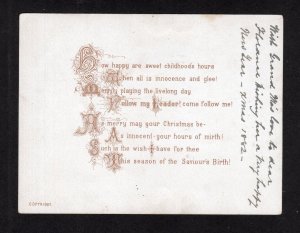 How happy are sweet childhoods hours
When all is innocence and glee!
Merrily playing the livelong day
"Follow my leader! come follow me!
As merry may your Christmas be-
As innocent your hours of mirth!
Such is the wish I have for thee
This season of the Saviour's Birth!
COPYRIGHT
With Grand Ma's love to dear
Florance wishing her a very happy
New Year - Xmas 1882 -